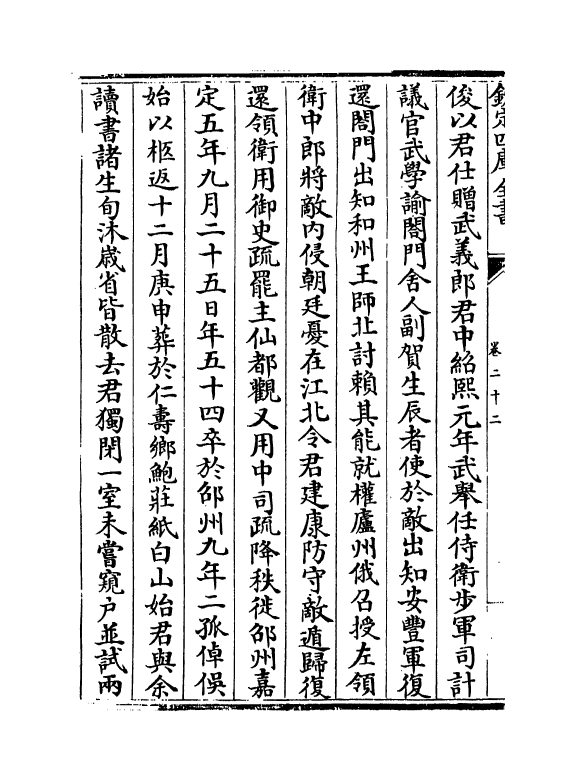 欽定四庫全書
卷二十二
俊以君仕贈武義郎君中紹熙元年武舉任侍衛步軍司計
議官武學諭閤門舍人副賀生辰者使於敵出知安豐軍復
還閤門出知和州王師北討賴其能就權廬州俄召授左領
衛中郎將敵內侵朝廷憂在江北令君建康防守敵遁歸復
還領衛用御史疏罷主仙都觀又用中司疏降秩徙邵州嘉
定五年九月二十五日年五十四卒於邵州九年二孤倬俁
始以柩返十二月庚申葬於仁壽鄉鮑莊紙白山始君與余
讀書諸生旬沐歲省皆散去君獨閉一室未嘗窺户並試兩